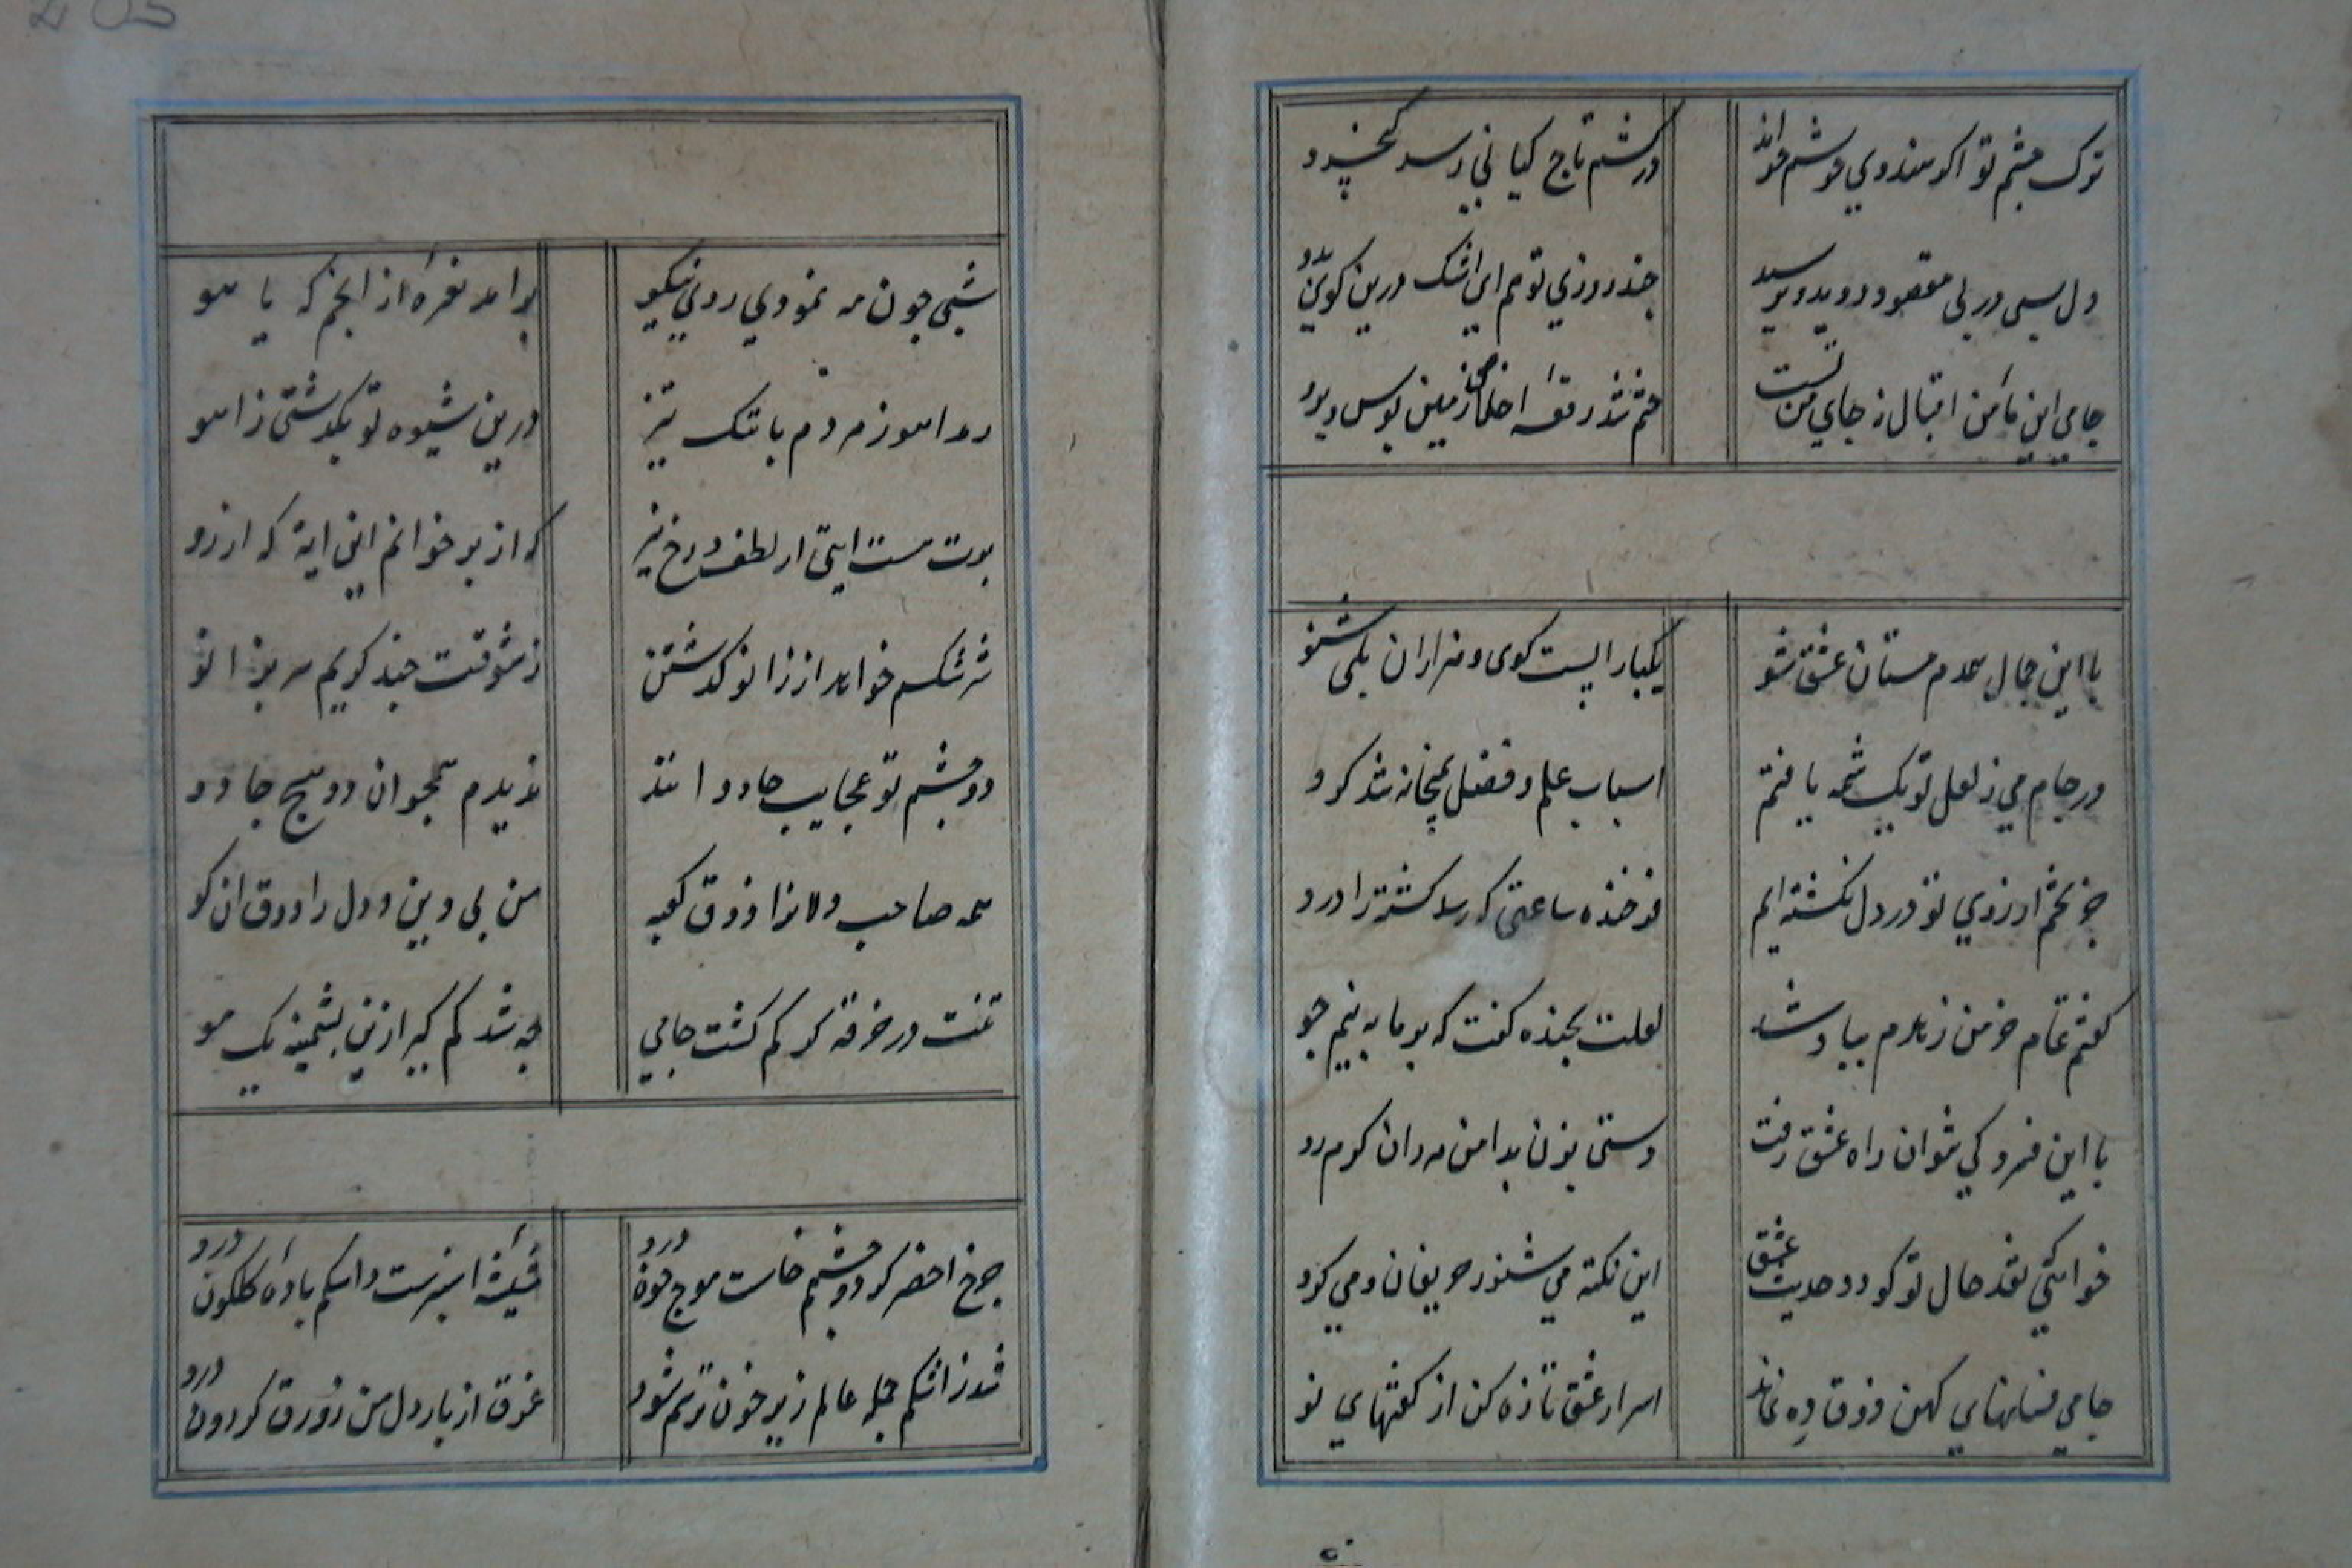 ترک چشم تو اگر هندوی خویشم خواند
در شم تاج کیانی رسد کیخسرو
دل بسی در پی مقصود دوید و نرسید
چند روزی تو هم ای اشک درین کوی بدو
جامی این مأمن اقبال نه جای من تست
ختم شد رقعه اخلاص زمین بوس و برو
با این جمال همدم مستان عشق شو
یکبار الست کوی و هزاران بلی شنو
در جام می ز لعل تو یک شمه یافتم
اسباب علم و فضل بمیخانه شد کرو
جز تخم ارزوی تو در دل نکشته ایم
فرخنده ساعتی که رسد کشته را درو
کفتم تمام خرمن زهدم بباد شد
لعلت بخنده کفت که بر ما به نیم جو
با این فسردکی نتوان راه عشق رفت
دستی بزن بدامن مردان کرم رو
خواهی که نقد حال تو کردد حدیث عشق
این نکته می شنو ز حریفان و می کرو
جامی فسانهای کهن ذوق ده نماند
اسرار عشق تازه کن از کفتهای نو
شبی چون مه نمودی روی نیکو
برامد نعره از انجم که یا هو
رمد اهو ز مردم با تک تیز
درین شیوه تو بکذشتی ز اهو
بود هست ایتی از لطف و رخ نیز
که از بر خوانم این ایة که از رو
سرشکم خواهد از زانو کذشتن
ز شوقت چند کریم سر بزانو
دو چشم تو عجایب جادوانند
ندیدم همچو ان دو هیچ جادو
همه صاحب دلانرا ذوق کعبه
من بی دین و دل را ذوق ان کو
تنت در خرقه کر کم کشت جامی
چه شد کم کیر ازین پشمینه یک مو
چرخ اخضر کرد و چشم خاست موج خون درو
شیشهٔ سبزست و اشکم بادهٔ کلکون درو
شد ز اشکم جمله عالم زیر خون ترسم شود
غرق از بار دل من زورق کردون درو